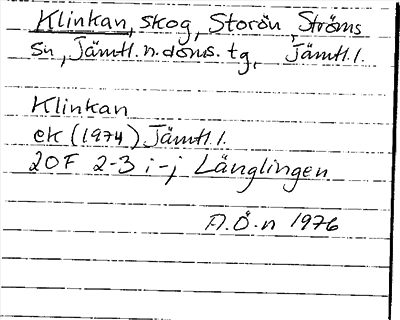 Klinkan, skog, Storön, Ströms
sn, Jämtl. n. doms. tg, Jämtl. l.
Klinkan
ek (1974) Jämtl. l.
20F 2-3 i-j Länglingen
A.Ö-n 1976